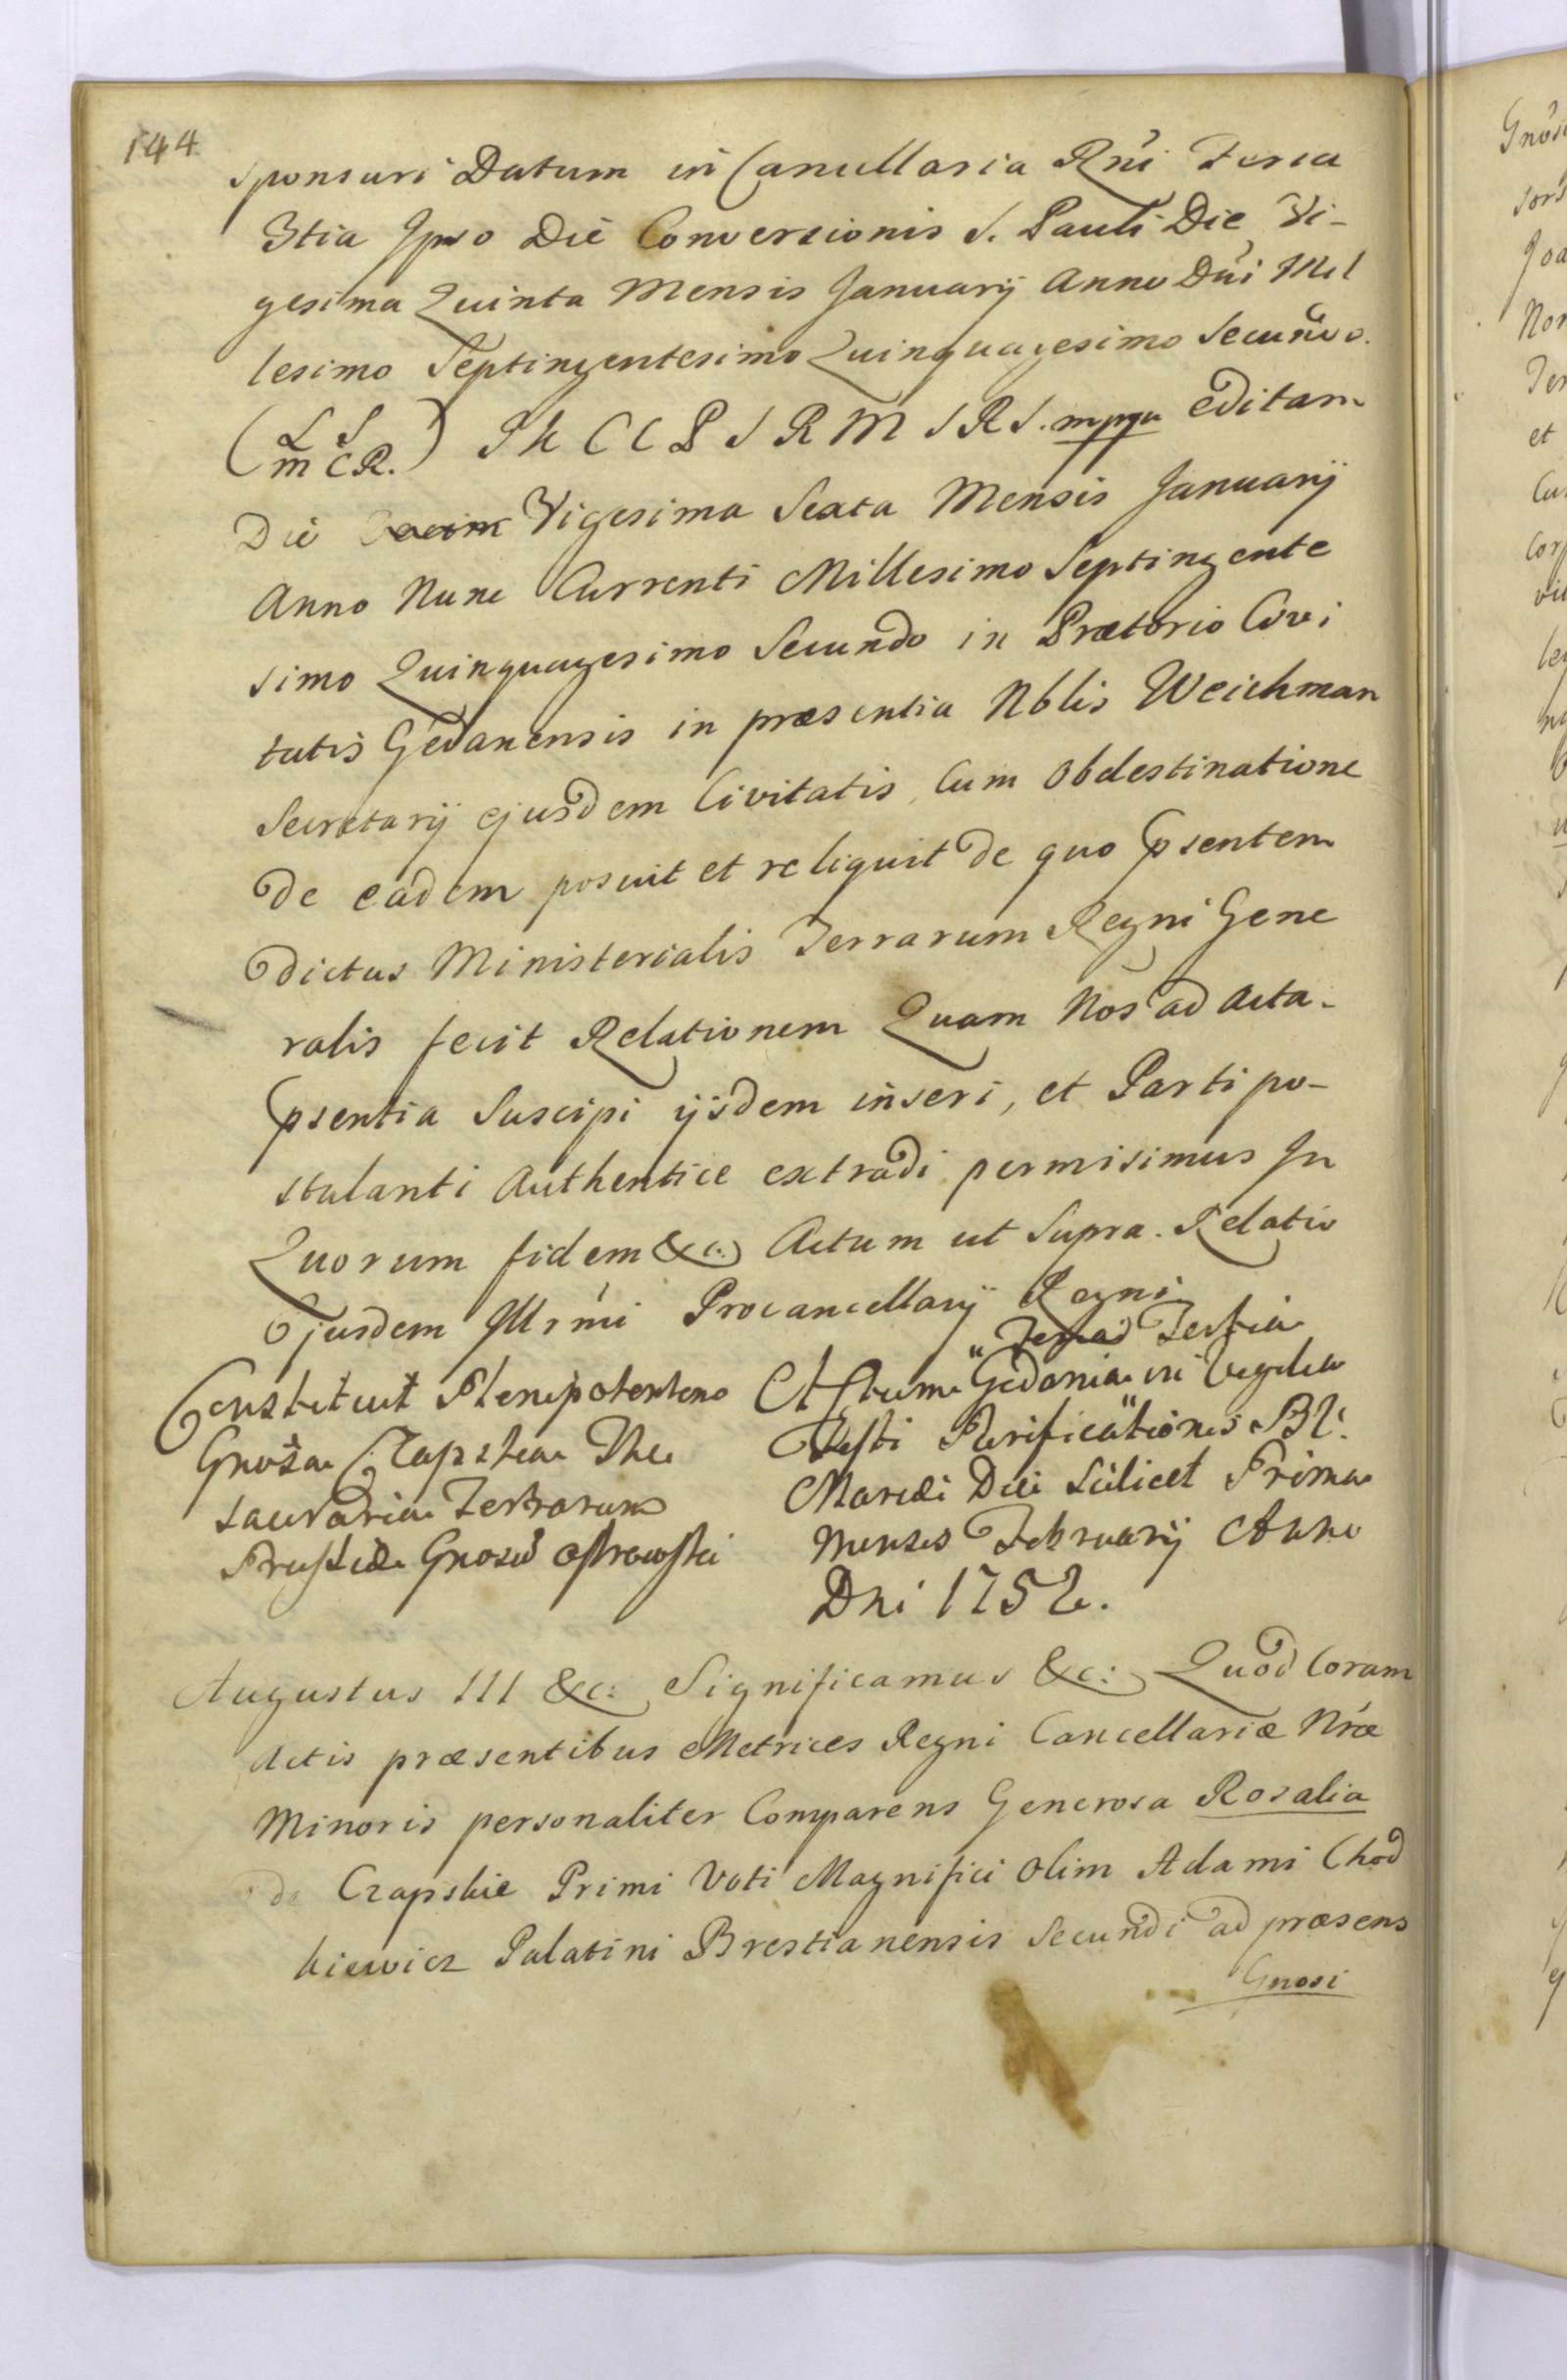 144
sponsuri Datum in Cancellaria Rńi Feria
3tia Ipso Die Conversionis S. Pauli Die Vi-
gesima Quinta Mensis Januarij Anno Dńi Mil
lesimo Septingentesimo Quinquagesimo Secundo.
(L S
m C R.) S k C C P S R M S R S. mppa editam
Die Vigesima Sexta Mensis Januarij
Anno Nunc Currenti Millesimo Septingente
simo Quinquagesimo Secundo in Prætorio Civi
tatis Gedanensis in præsentia Nblis Weichman
Secretarij ejusdem Civitatis, Cum obdestinatione
de eadem posuit et reliquit de quo psentem
dictus Ministerialis Terrarum Regni Gene
ralis fecit Relationem Quam Nos ad Acta
psentia Suscipi ijsdem inseri, et Parti po-
stulanti Authentice extradi permisimus In
Quorum fidem &c: Actum ut Supra. Relatio
Ejusdem Illrmi Procancellarij Regni
Constituit Plenipotentem
Gnosa Czapska The
sauraria Terrarum
Prussiæ Gnosū Ostrowski
Feria Tertia
Actum Gedaniæ in Vigilia
Festi Purificationis B V.
Mariæ Die Scilicet Prima
Mensis Februarij Anno
Dni 1752.
Augustus III &c: Significamus &c: Quod Coram
Actis præsentibus Metrices Regni Cancellariæ Nræ
Minoris personaliter Comparens Generosa Rosalia
de Czapskie Primi Voti Magnifici olim Adami Chod
kiewicz Palatini Brestianensis Secundi ad præsens
Gnosi